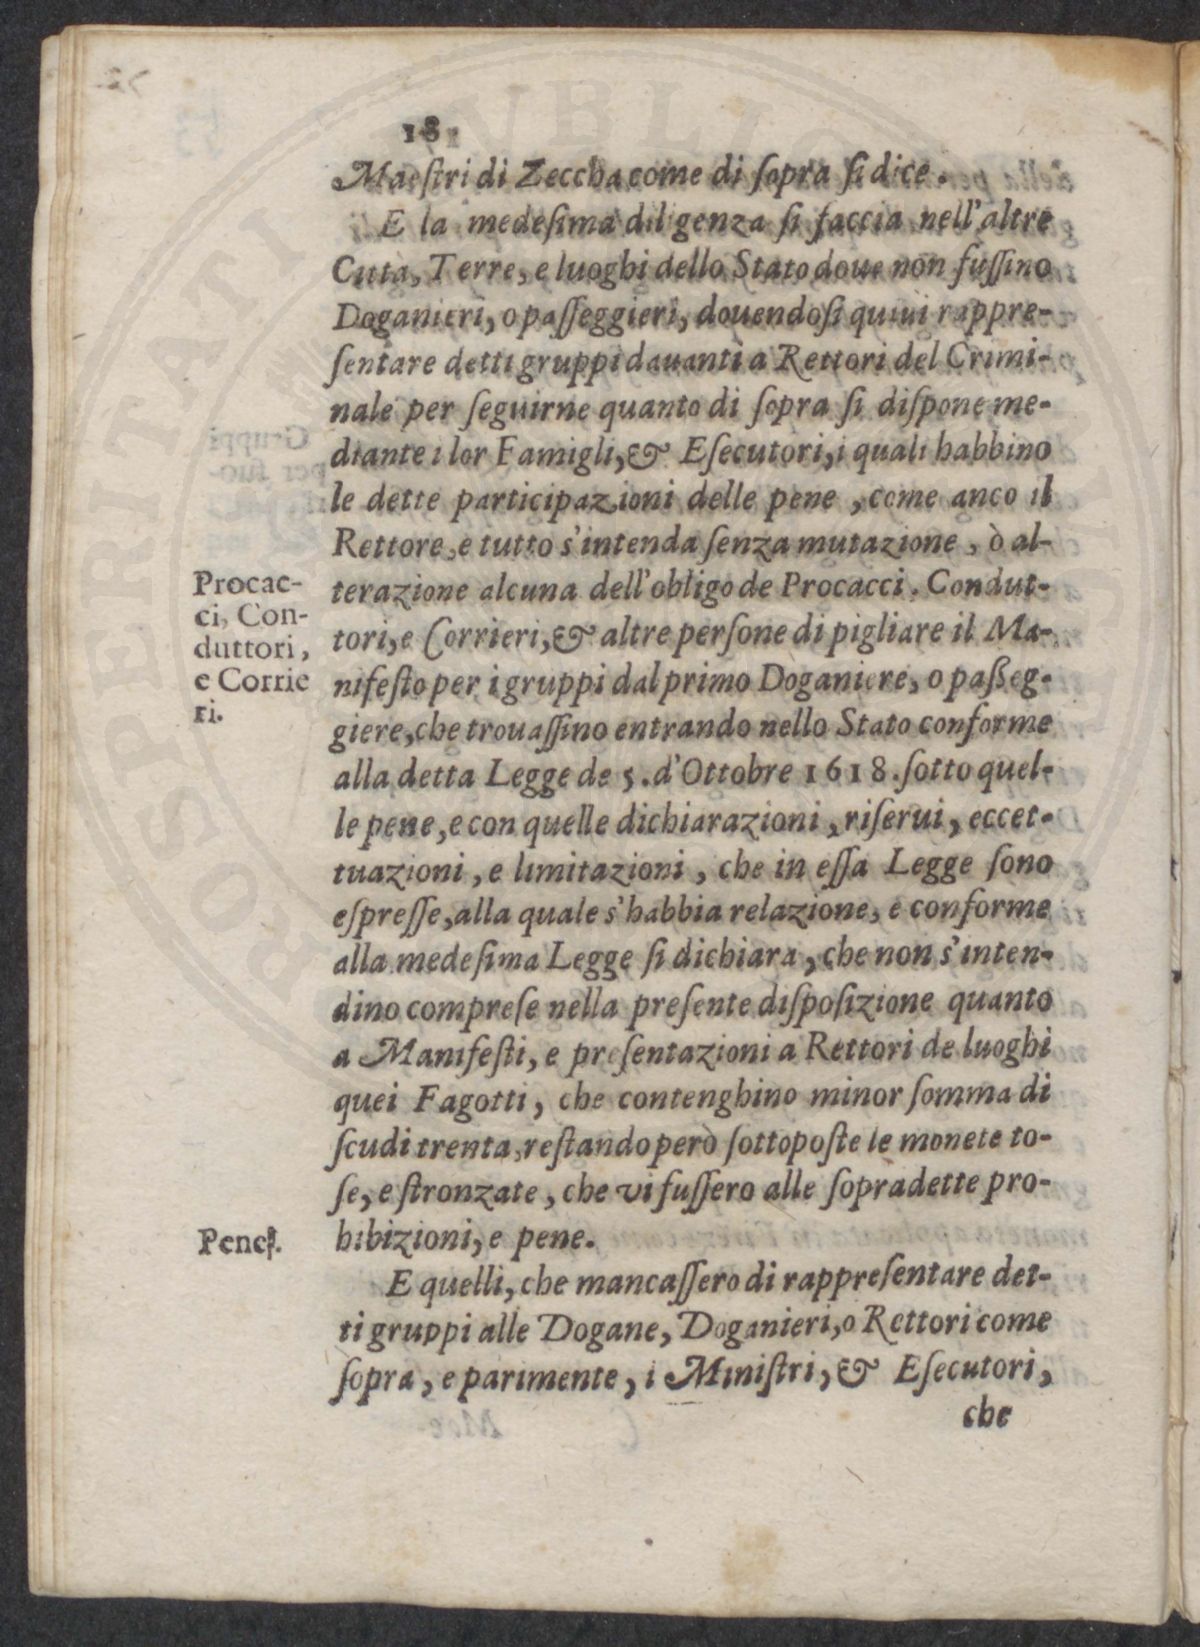 18
Maeſtri di Zeccha come di ſopra ſi dice.
E la medeſima diligenza ſi faccia nell'altre
Citta, Terre, e luoghi dello Stato doue non fuſſino
Doganieri, o paſſeggieri, douendoſi quiui rappre-
ſentare detti gruppi dauanti a Rettori del Crimi-
nale per ſeguirne quanto di ſopra ſi diſpone me-
diante i lor Famigli, & Eſecutori, i quali habbino
le dette participazioni delle pene, come anco il
Rettore, e tutto s'intenda ſenza mutazione, ò al-
terazione alcuna dell'obligo de Procacci. Condut-
tori, e Corrieri, & altre perſone di pigliare il Ma-
nifeſto per i gruppi dal primo Doganiere, o paßeg-
giere, che trouaſſino entrando nello Stato conforme
alla detta Legge de 5. d'Ottobre 1618. ſotto quel-
le pene, e con quelle dichiarazioni, riſerui, eccet-
tuazioni, e limitazioni, che in eſſa Legge ſono
eſpreſſe, alla quale s'habbia relazione, e conforme
alla medeſima Legge ſi dichiara, che non s'inten-
dino compreſe nella preſente diſpoſizione quanto
a Manifeſti, e preſentazioni a Rettori de luoghi
quei Fagotti, che contenghino minor ſomma di
ſcudi trenta, reſtando però ſottopoſte le monete to-
ſe, e ſtronzate, che vi fuſſero alle ſopradette pro-
hibizioni, e pene.
E quelli, che mancaſſero di rappreſentare det-
ti gruppi alle Dogane, Doganieri, o Rettori come
ſopra, e parimente, i Miniſtri, & Eſecutori,
che
Procac-
ci, Con-
duttori,
e Corrie
ri.
Pene.